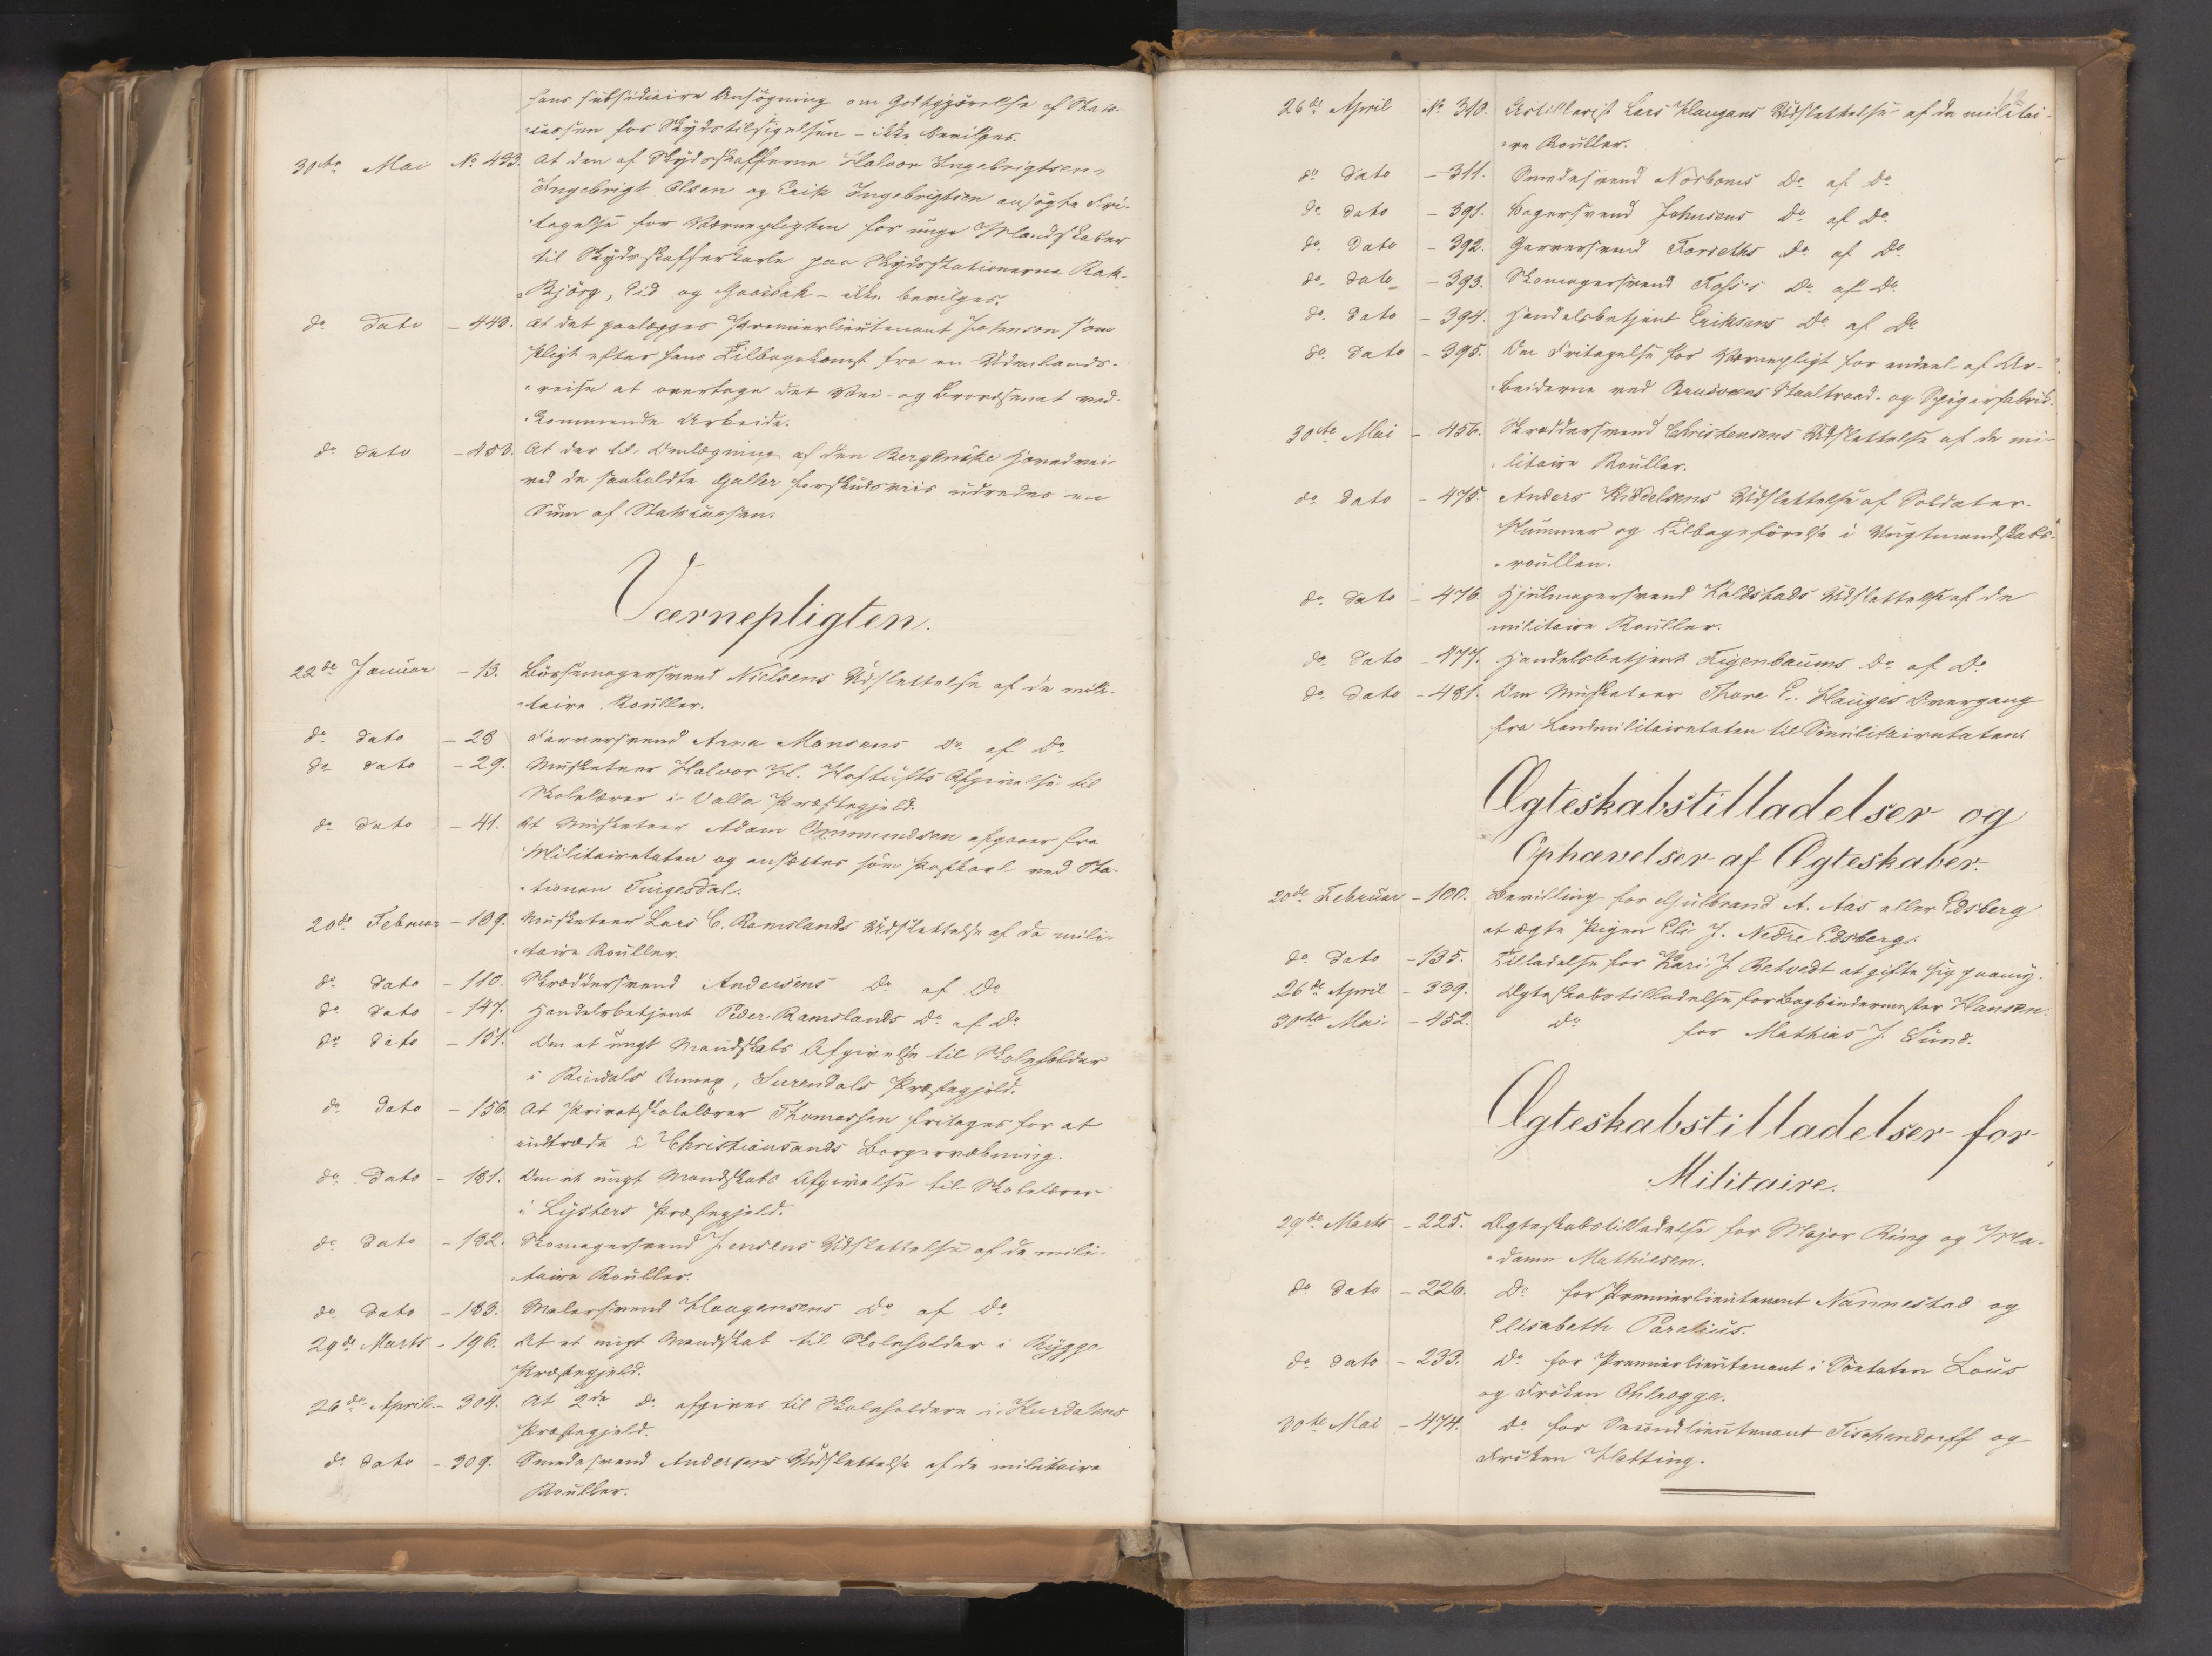 hans subsidiaire Ansögning om Godtgjörelse af Stats-
cassen for Skydstilsigelsen – ikke bevilges.
30te Mai No 433. At den af Skydsskafferne Halvor Ingebrigtsen,
Ingebrigt Olsen og Erik Ingebrigtsen ansögte Fri-
tagelse for Værnepligten for unge Mandskaber
til Skydsskafferkarle paa Skydsstationerne Rak-
Björg, Eid og – ikke bevilges.
do Dato – 440. At det paalægges Premierlieutenant Johnson som
Pligt efter hans Tilbagekomst fra en Udenlands-
reise at overtage det Vei- og Brovæsenet ved-
kommende Arbeide.
do Dato – 453. At der til Omlægning af den Bergenske Hovedvei
ved de saakaldte Galler forskudsviis udredes en
Sum af Statscassen.
Værnepligten.
22de Januar – 13. Bössemagersvend Nielsens Udslettelse af de mili-
taire Rouller.
do Dato – 28 Farversvend Arne Monsens Do af Do
do Dato – 29. Musketeer Halvor H. Hoftufts Afgivelse til
Skolelærer i Valle Præstegjeld.
do Dato – 41. At Musketeer Adam Ommundsen afgaaer fra
Militairetaten og ansættes som Postkarl ved Sta-
tionen Tuigesdal.
20de Februar – 109. Musketeer Lars C. Ramslands Udslettelse af de mili-
taire Rouller.
do Dato – 110. Skræddersvend Andersens Do af Do
do Dato – 147. Handelsbetjent Peder Ramslands Do af Do
do Dato – 151. Om et ungt Mandskabs Afgivelse til Skoleholder
i Rindals Annex, Surendals Præstegjeld.
do Dato – 156. At Privatskolelærer Thomassen fritages for at
indtræde i Christiansands Borgervæbning.
do Dato – 181. Om et ungt Mandskabs Afgivelse til Skolelærer
i Lysters Præstegjeld.
do Dato – 182. Skomagersvend Jensens Udslettelse af de mili-
taire Rouller.
do Dato – 183. Malersvend Haagensens Do af Do
29de Marts – 196. At et ungt Mandskab til Skoleholder i Rygge
Præstegjeld.
26de April – 304. At 2de Do afgives til Skoleholdere i Hurdalens
Præstegjeld.
do Dato – 309. Smedesvend Andersens Udslettelse af de militaire
Rouller.
26de April No 310. Artillerist Lars Haugans Udslettelse af de militai-
re Rouller.
do Dato – 311. Smedesvend Norboms Do af Do
do Dato – 391. Bagersvend Johnsens Do af Do
do Dato – 392. Garversvend Forseths Do af Do
do Dato – 393. Skomagersvend Foss's Do af Do
do Dato – 394. Handelsbetjent Eriksens Do af Do
do Dato – 395. Om Fritagelse for Værnepligt for endeel af Ar-
beiderne ved Brusveens Staaltraad- og Spigerfabrik.
30te Mai – 456. Skræddersvend Christensens Udslettelse af de mi-
litaire Rouller.
do Dato – 475. Anders Kiddelsens Udslettelse af Soldater-
Nummer og Tilbageförelse i Ungtmandskabs-
roullen.
do Dato – 476. Hjulmagersvend Koldstads Udslettelse af de
militaire Rouller.
do Dato – 477. Handelsbetjent Figenbaums Do af Do
do Dato – 481. Om Musketeer Thore E. Hauges Overgang
fra Landmilitairetaten til Sömilitairetaten.
Ægteskabstilladelser og
Ophævelser af Ægteskaber.
20de Februar – 100. Bevilling for Gulbrand A. Aas eller Edsberg
at ægte Pigen Eli J. Nedre Edsberg.
do Dato – 135. Tilladelse for Kari J. Retvedt at gifte sig paany.
26de April – 339. Ægteskabstilladelse for Bogbindermester Hansen.
30te Mai – 452. Do for Mathias J. Sund.
Ægteskabstilladelser for
Militaire.
29de Marts – 225. Ægteskabstilladelse for Major Ring og Ma-
dame Mathiesen.
do Dato – 226. Do for Premierlieutenant Nannestad og
Elisabeth Parelius.
do Dato – 233. Do for Premierlieutenant i Söetaten Lous
og Fröken Ohlrogge.
30te Mai – 474. Do for Secondlieutenant Tischendorff og
Fröken Hetting.